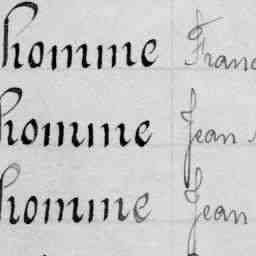 homme Franc
homme Jean
homme Jean